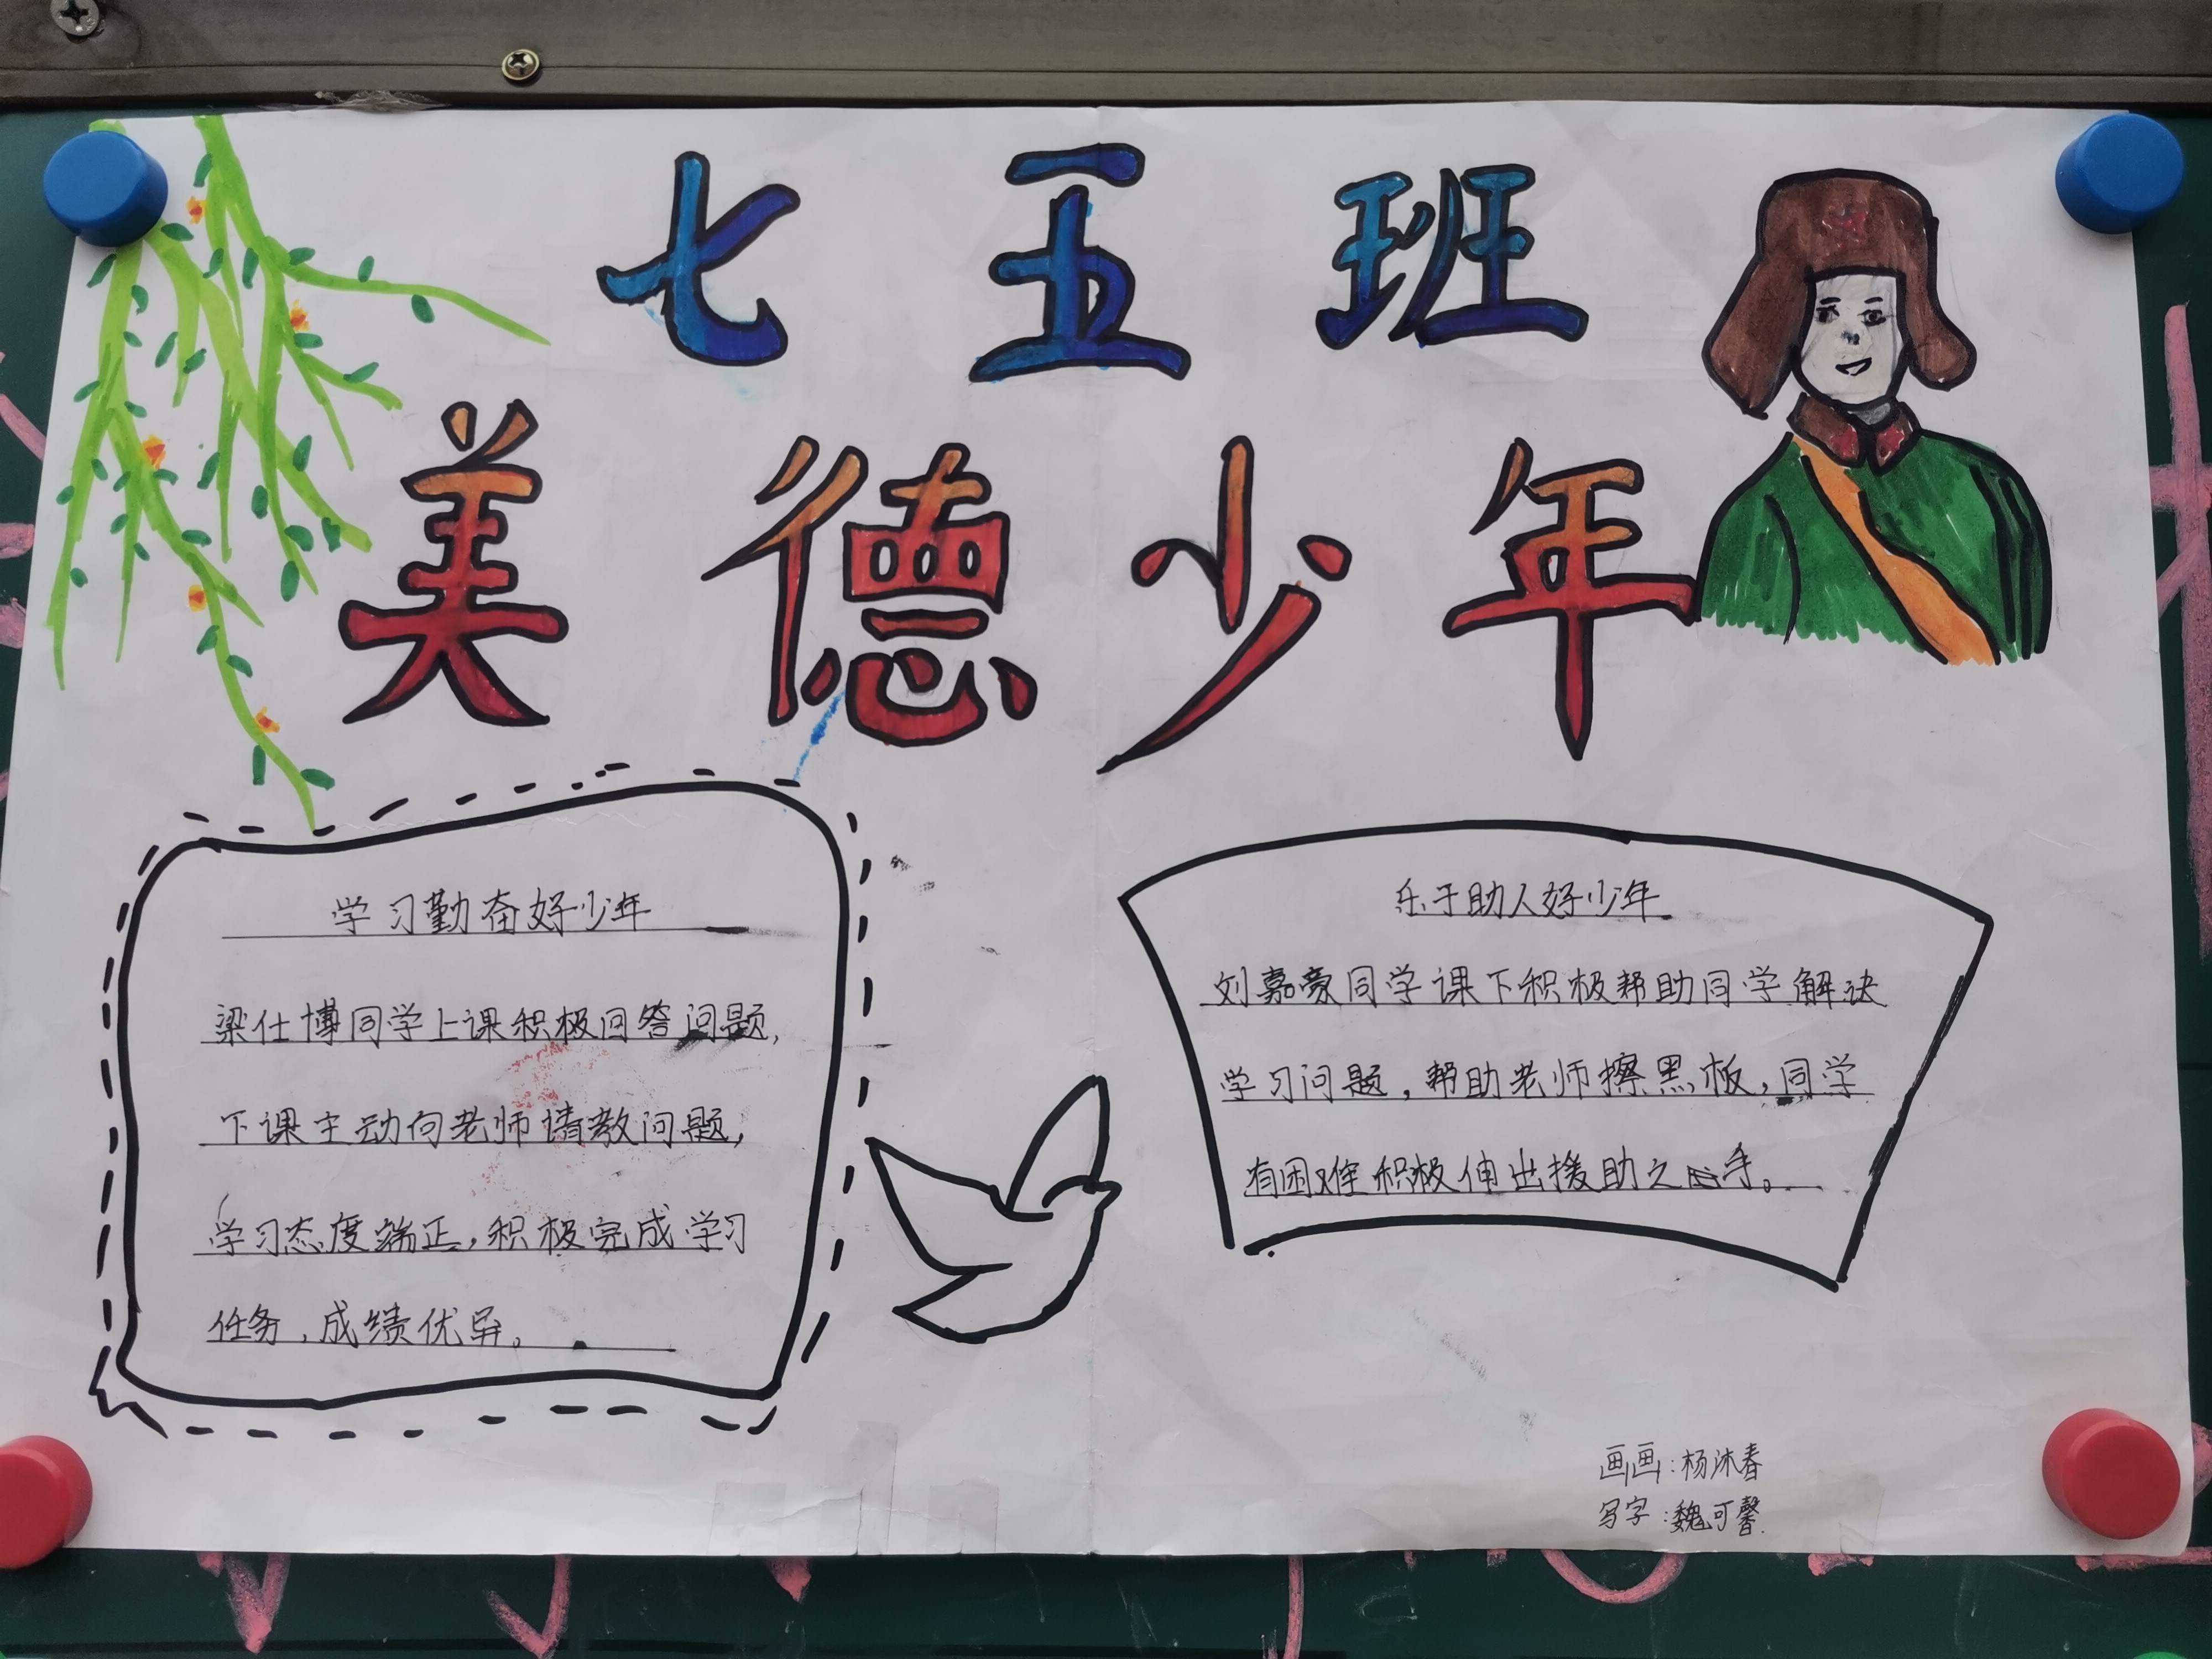 七五班
美德少年
学习勤奋好少年
梁仕博同学上课积极回答问题,
下课主动向老师请教问题,
学习态度端正,积极完成学习
任务,成绩优异。
乐于助人好少年
刘嘉豪同学课下积极帮助同学解决
学习问题,帮助老师擦黑板,同学
有困难积极伸出援助之手。
画画:杨沐春
写字:魏可馨